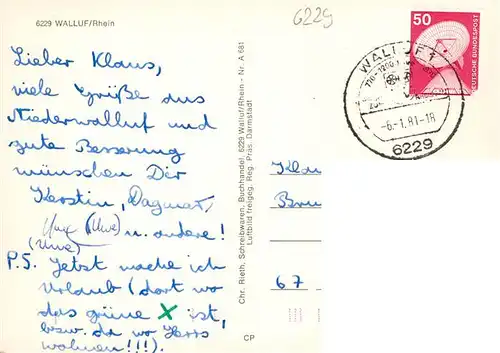 6229 WALLUF/Rhein
6229
Lieber Klaus,
viele Grüße aus
Niederwalluf und
gute Besserung
wünschen Dir
Kerstin, Dagmar,
Uwe (Uwe)
(Uwe) u. andere!
P.S. Jetzt mache ich
Urlaub (dort wo
das grüne X ist,
bzw. da wo Herrs
wohnen!!!).
Chr. Rieth, Schreibwaren, Buchhandel, 6229 Walluf/Rhein - Nr. A 681
Luftbild freigeg. Reg. Präs. Darmstadt
CP
50
DEUTSCHE BUNDESPOST
WALLUF 1
-6.-1.81-18
6229
Klau
67